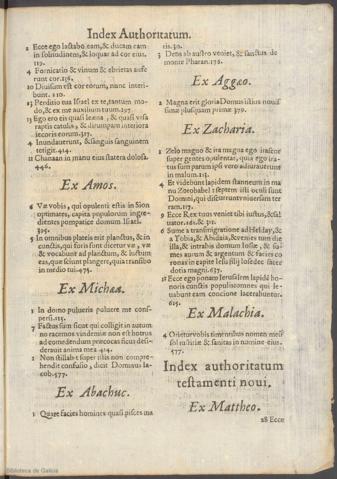 Index Authoritatum.
2 Ecce ego lactabo eam, & ducam eam
in solitudinem, & loquar ad cor eius.
119.
4 Fornicatio & vinum & ebrietas aufe
runt cor.136.
10 Divisum est cor eorum, nunc interi-
bunt. 210.
13 Perditio tua Israel ex te, tantum mo-
do, & ex me auxilium tuum.
13 Ego ero eis quasi leæna, & quasi vrsa
raptis catulis, & dirumpam interiora
iecoris eorum.
4 Inundauerunt, & sanguis sanguinem
tetigit.414.
12 Chanaan in manu eius statera dolosa.
446.
Ex Amos.
6 Væ vobis, qui opulenti estis in Sion
optimates, capita populorum ingre-
dientes pompatice domum Israel.
395.
5 In omnibus plateis erit planctus, & in
cunctis, qui foris sunt dicetur væ, væ
& vocabunt ad planctum, & luctum
eas, quæ sciunt plangere, quia transibo
in medio tui.475.
Ex Michæa.
1 In domo pulueris puluere me consp-
ersi.
7 Factus sum sicut qui colligit in autum
no racemos vindemiæ non est botrus
ad comedendum præcocas ficus desi-
derauit anima mea 414.
2 Non stillabit super illos non compre-
hendit confusio, dicit Dominus Ia-
cob.577.
Ex Abachuc.
1 Quare facies homines quasi pisces ma
ris.30.
3 Deus ab austro veniet, & sanctus de
monte Pharan.176.
Ex Aggæo.
2 Magna erit gloria Domus istius nouis
simæ plusquam primæ 379.
Ex Zacharia.
1 Zelo magno & ira magna ego irascor
super gentes opulentas, quia ego ira-
tus sum parum ipsi vero adiuuauerunt
in malum.
4 Et videbunt lapidem stanneum in ma
nu Zorobabel septem isti oculi sunt
Domini, qui discurrunt in vniuersam ter
ram.
9 Ecce Rex tuus veniet tibi iustus, & sal
uator.
6 Sume a transmigratione ad Helday, &
a Tobia, & Abidaia, & venies tum die
illa, & intrabis domum Iosiæ, & su-
mes aurum & argentum & facies co
ronas in capite Iesu filij Iosedec sacer
dotis magni.637.
12 Ecce ego ponam Ierusalem lapidē ho-
noris cunctis populis omnes qui le-
uabunt eam concisione lacerabuntur.
615.
Ex Malachia.
4 Orietur vobis timentibus nomen meū
sol iustitiæ & sanitas in namine eius.
577.
Index authoritatum
testamenti noui.
Ex Mattheo.
28 Ecce
Biblioteca de Galicia